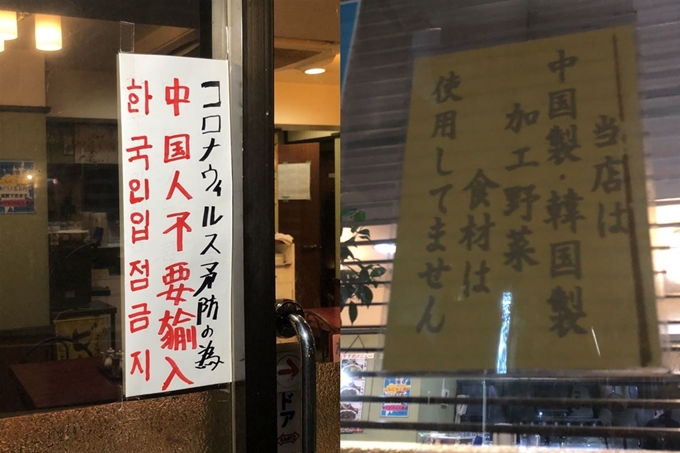 コロナウィルス矛防の為
中国人不要輸入
한국인입점금지
ドア
当店は
中国製・韓国製
加工野菜
食材は
使用してません